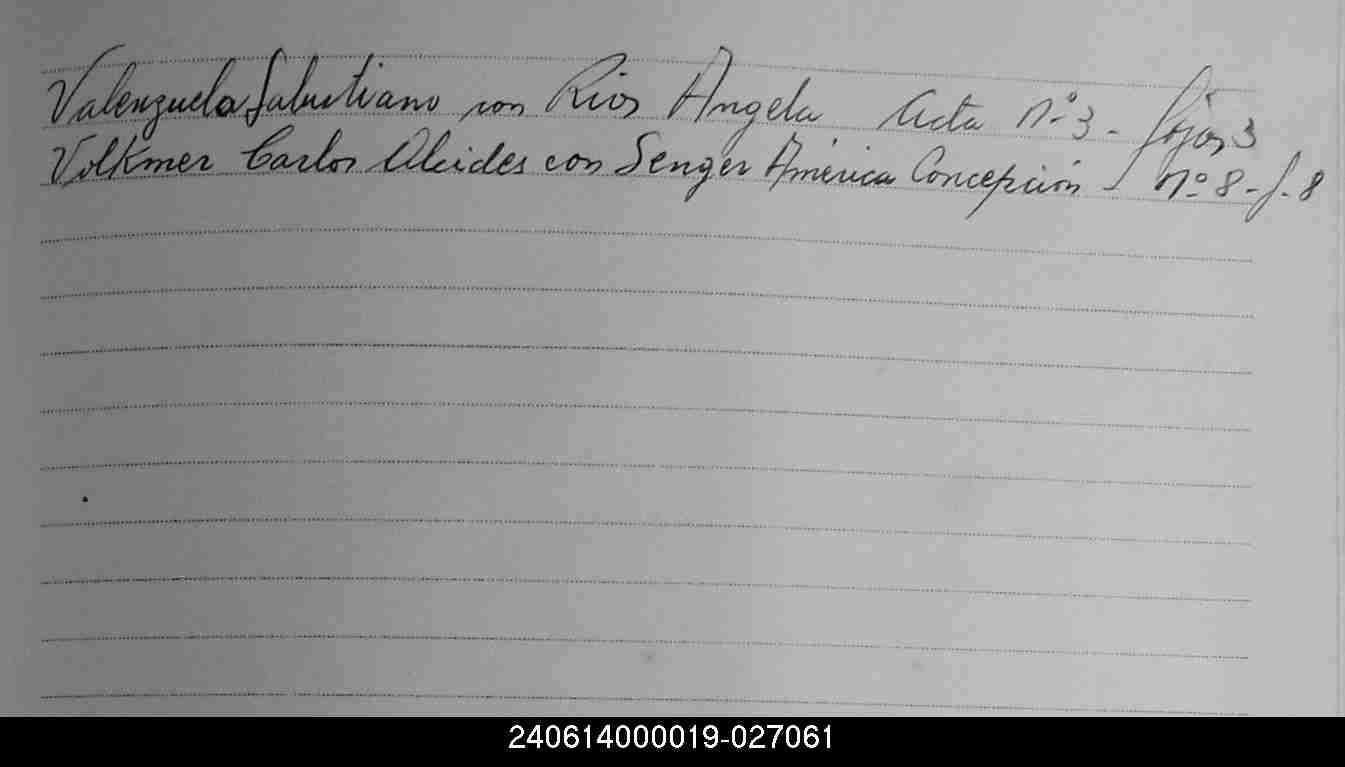 Valenzuela Salustiano con Rios Angela Acta nº 3 - fojas 3
Volkmer Carlos Alcides con Senger América Concepción - nº 8 - f. 8
240614000019-027061